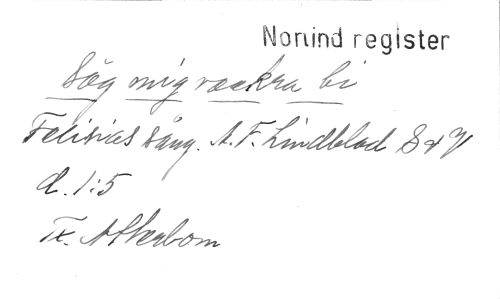 Norlind register
Säg mig vackra bi
Felisias sång. A. F. Lindblad S & V
d. 1:5
Tx. Atterbom